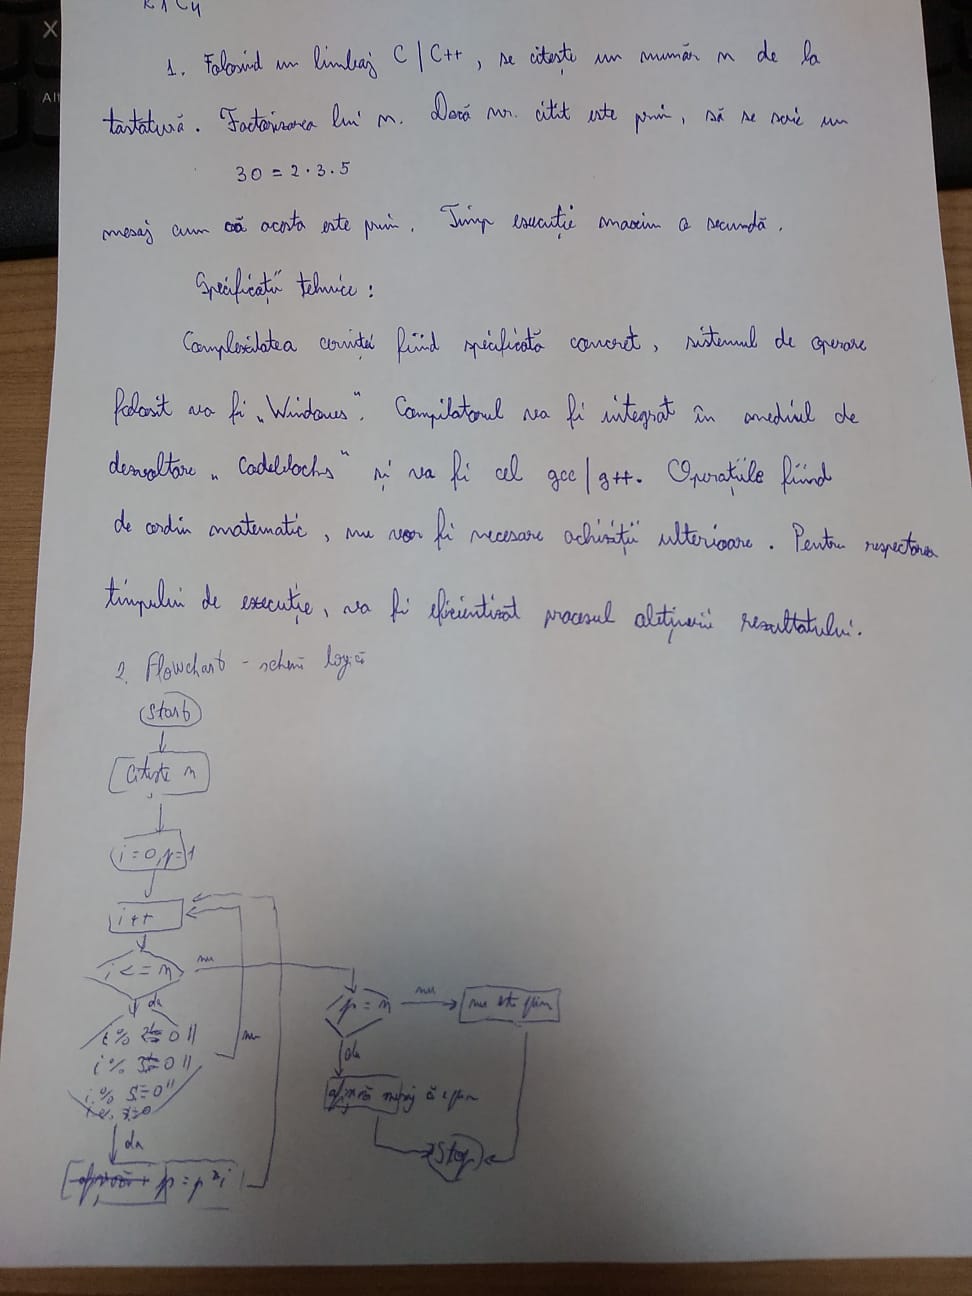 1. Folosind un limbaj C | C++, se citește un număr n de la
tastatură. Factorizarea lui n. Dacă nr. citit este prim, să se scrie un
30 = 2 · 3 . 5
mesaj cum că acesta este prim. Timp execuție maxim o secundă.
Specificații tehnice :
Complexitatea cerinței fiind specificată concret, sistemul de operare
folosit va fi „Windows". Compilatorul va fi integrat în mediul de
dezvoltare „Codeblocks" și va fi cel gcc | g++. Operațiile fiind
de ordin matematic, nu vor fi necesare achiziții ulterioare. Pentru respectarea
timpului de execuție, va fi eficientizat procesul obținerii rezultatului.
2. Flowchart - schemă logică
Start
Citește n
i = 0, p=1
i++
i <= n
nu
da
p = n
nu
nu este prim
i % 2 = 0 ||
i % 3 = 0 ||
i % 5 = 0
nu
da
mesaj că e prim
da
Stop
p = p * i